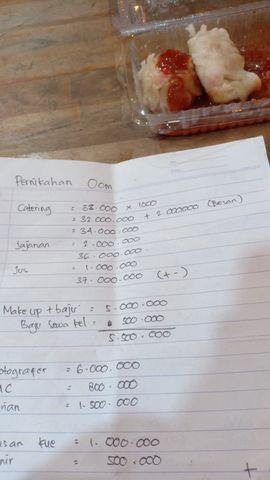 Pernikahan Oom
Catering = 32.000 × 1000
= 32.000.000 + 2.000000 (Besan)
= 34.000.000
Jajanan = 2.000.000
36.000.000
Jus = 1.000.000
37.000.000 (+-)
Make up + baju = 5.000.000
Baju Sewa kel = 500.000
5.500.000
otografer = 6.000.000
MC = 800.000
rian = 1.500.000
san kue = 1.000.000
nir = 500.000
+